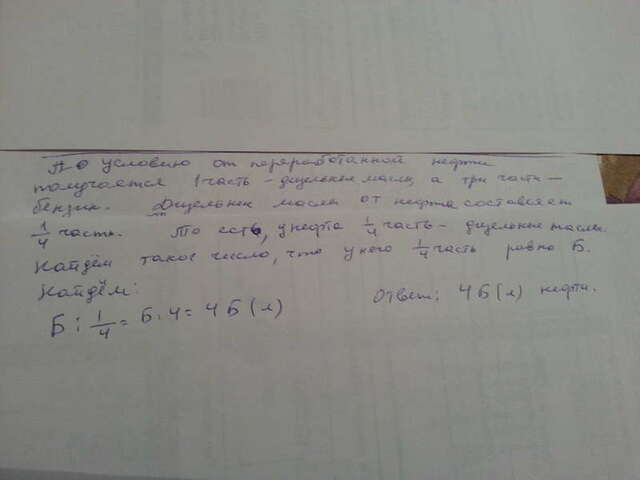 По условию от переработанной нефти
получается 1 часть - дизельное масло, а три части -
бензин. Дизельное масло от нефти составляет
1/4 часть. То есть, у нефти 1/4 часть - дизельное масло.
Найдём такое число, что у него 1/4 часть равно Б.
Найдём:
Б : 1/4 = Б · 4 = 4 Б (л)
Ответ: 4 Б (л) нефти.